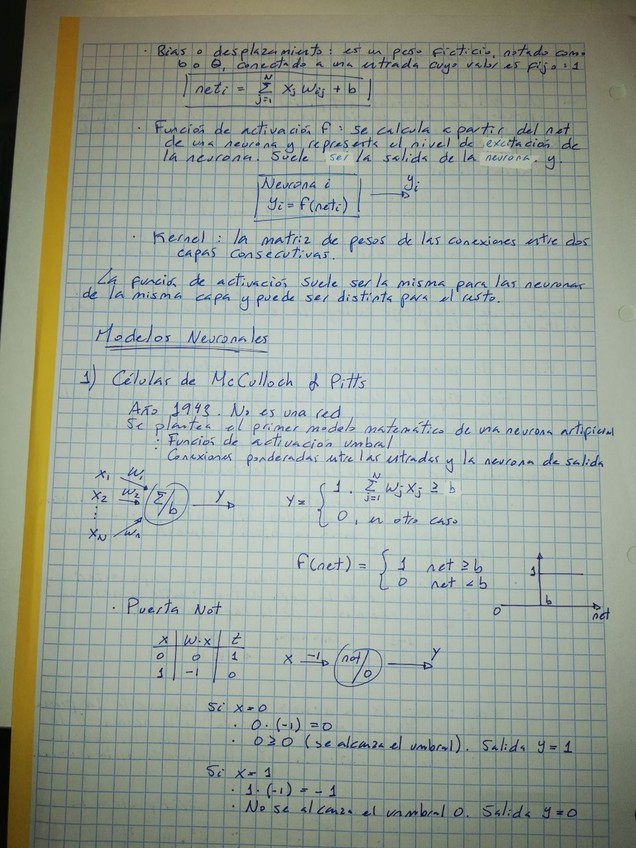 · Bias o desplazamiento: es un peso ficticio, notado como
b o θ, conectado a una entrada cuyo valor es fijo: 1
net_i = Σ_{j=1}^{N} x_j w_ij + b
· Función de activación f: se calcula a partir del net
de una neurona y representa el nivel de excitación de
la neurona. Suele ser la salida de la neurona. y.
Neurona i
y_i = f(net_i) → y_i
· Kernel: la matriz de pesos de las conexiones entre dos
capas consecutivas.
La función de activación suele ser la misma para las neuronas
de la misma capa y puede ser distinta para el resto.
Modelos Neuronales
1) Células de McCulloch & Pitts
Año 1943. No es una red
Se plantea el primer modelo matemático de una neurona artificial
· Función de activación umbral
· Conexiones ponderadas entre las entradas y la neurona de salida
x_1 w_1
x_2 w_2 Σ/b y
⋮
x_N w_n
y = { 1, Σ_{j=1}^{N} w_j x_j ≥ b
0, en otro caso
F(net) = { 1 net ≥ b
0 net < b
1
0 b net
· Puerta Not
x | w·x | t
0 | 0 | 1
1 | -1 | 0
x -1 → not/0 → y
Si x=0
· 0·(-1) = 0
· 0≥0 (se alcanza el umbral). Salida y=1
Si x=1
· 1·(-1) = -1
· No se alcanza el unmbral 0. Salida y=0